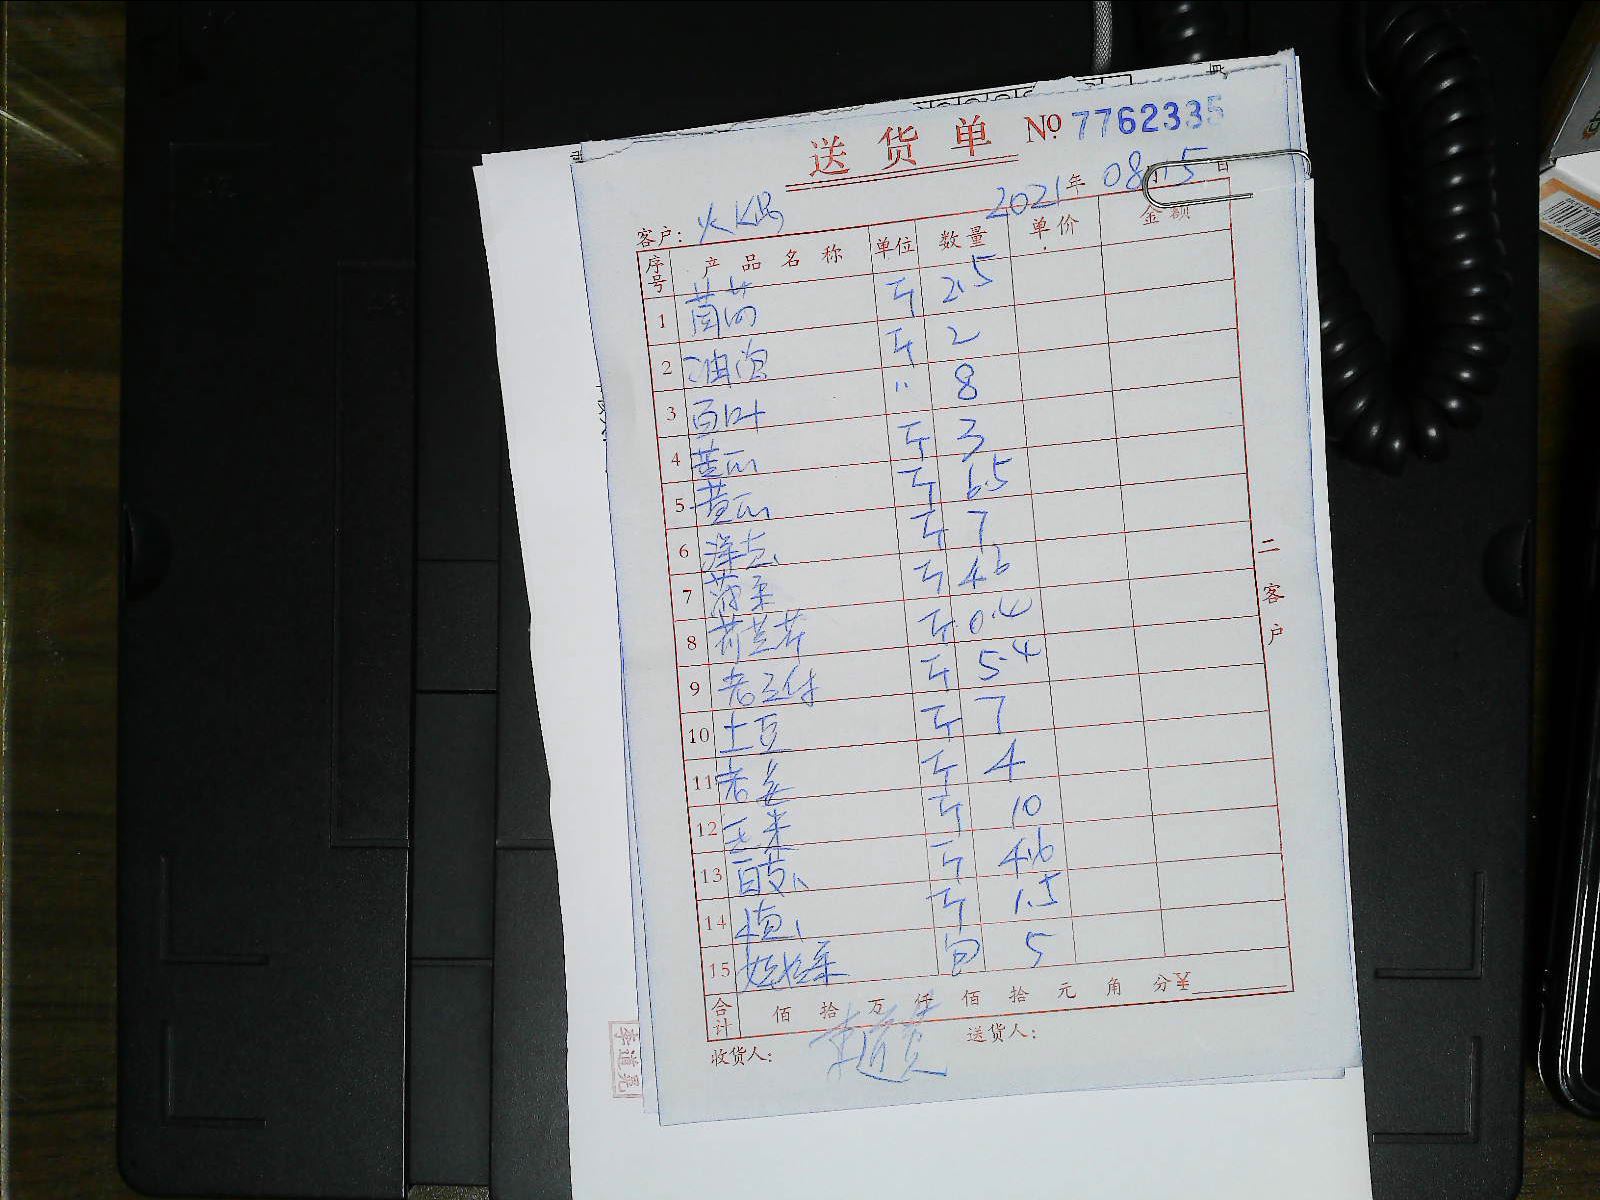 送货单 No 7762335
2021年 08月15日
客户：火锅
序号 产品名称 单位 数量 单价 金额
1 茼蒿 斤 2.5
2 油泡 斤 2
3 百叶 〃 8
4 苦瓜 斤 3
5 黄瓜 斤 6.5
6 洋芋 斤 7
7 菠菜 斤 4.6
8 荷兰芹 斤 0.4
9 斤 5.4
10 土豆 斤 7
11 老姜 斤 4
12 玉米 斤 10
13 斤 4.6
14 斤 1.5
15 娃娃菜 包 5
合计 佰 拾 万 仟 佰 拾 元 角 分¥
收货人： 送货人：
二客户
李道亮